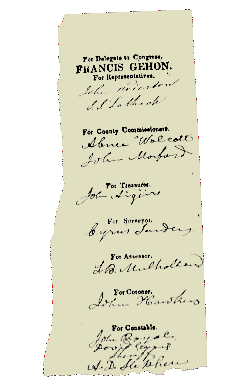 For Delegate to Congress,
FRANCIS GEHON.
For Representatives,
John
S. S. Lathrop
For County Commissioners.
Abner Wolcott
John Morford
For Treasurer.
John Higgins
For Surveyor.
Cyrus Sanders
For Assessor.
L.B. Mulholland
For Coroner.
John Hawkins
For Constable.
John Royal
A. D. Stephen